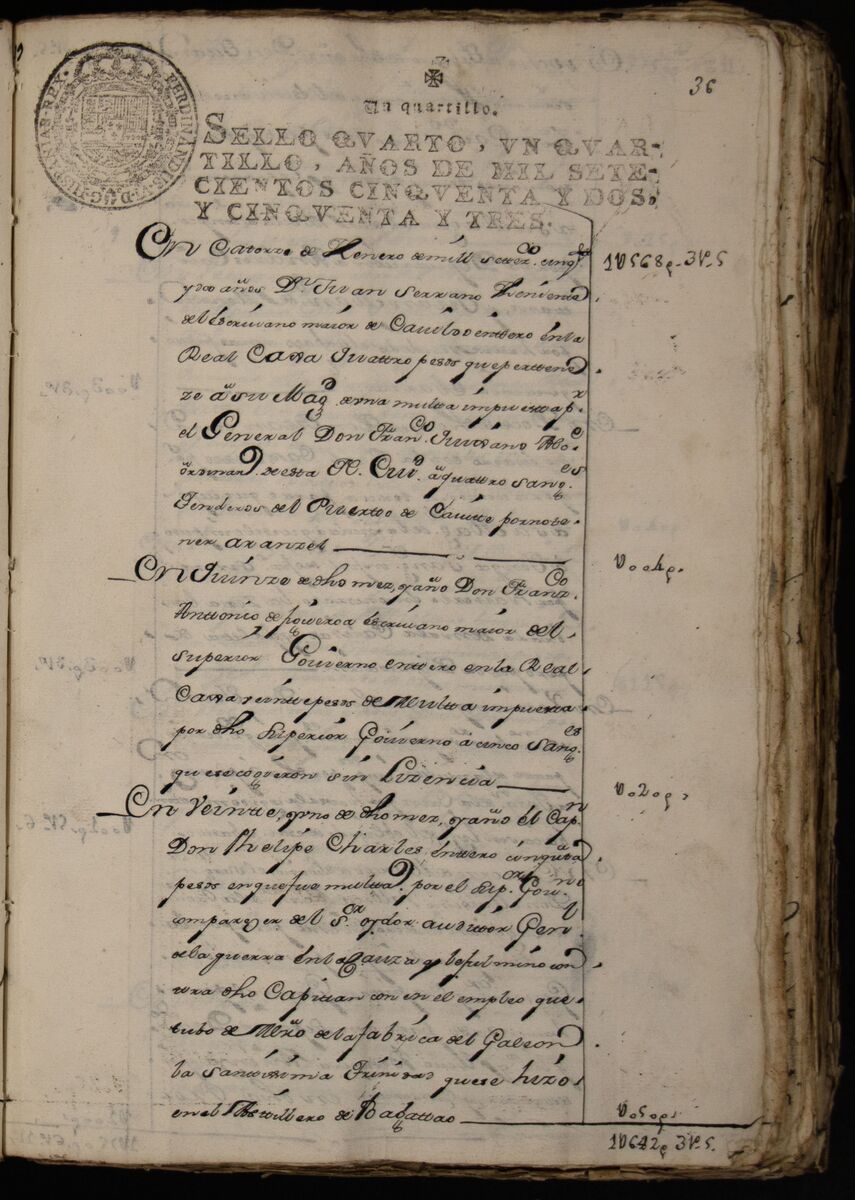 36
Un quartillo.
SELLO QVARTO, VN QVAR-
TILLO, AÑOS DE MIL SETE-
CIENTOS CINQVENTA Y DOS,
Y CINQVENTA Y TRES.
FERDINANDUS VI D G HISPANIAR REX
En Catorze de Henero de mill setez.os cinq.ta
y dos años D.n Juan Serrano Theniente
del Escrivano maior de Cavildo entero en la
Real Caxa Quattro pesos que pertene
ze a su Mag.d de una multa impuesta p.r
el General Don Fran.co Quixano Alc.e
ordinar.o de esta N. Ciu.d a quattro sang.es
tenderos del Puerto de Cavitte por no te
ner aranzel
1U568p.3r.5
U004p.
En Quinze de dho mez, y año Don Franz.co
Anttonio de figueroa Escrivano maior del
Superior Govierno entero en la Real
Caxa veintte pesos de Multta impuesta
por dho Superior Govierno a cinco Sang.es
que se cogieron sin Lizencia
U020p.
En Veintte, y uno de dho mez, y año el Cap.n
Don Phelipe Charles, enttero cinq.ta
pesos en que fue multad.o por el Sup.or Gov.no
comparezer del S.or oydor auditor Gen.l
de la guerra en la Cauza q.e le fulmino con
tra dho Capittan con en el empleo que
tubo de Mro de la fabrica del Galeon
la Santissima Trinidad que se hizo
en el Astillero de Bagattao
U050p.
1U642p 3r.5.